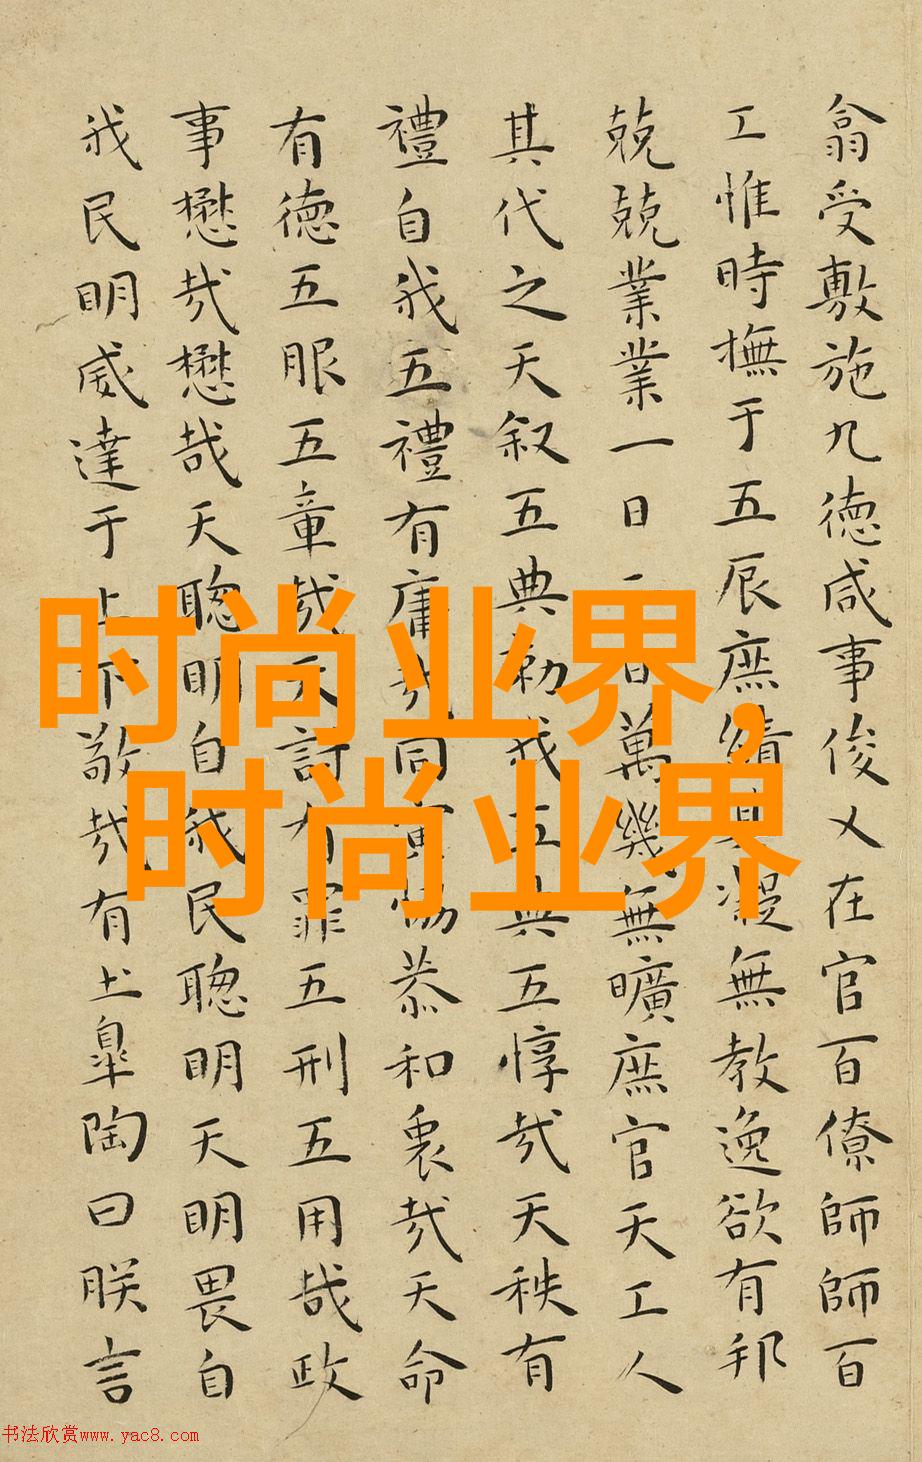 翕受敷施九德咸事俊乂在官百僚師師百
工惟時撫于五辰庶績其凝無教逸欲有邦
兢兢業業一日二日萬幾無曠庶官天工人
其代之天叙五典勑我五典五惇哉天秩有
禮自我五禮有庸哉同寅協恭和衷哉天命
有德五服五章哉天討有罪五刑五用哉政
事懋哉懋哉天聰明自我民聰明天明畏自
我民明威達于上下敬哉有土皋陶曰朕言
时尚业界,
时尚业界
书法欣赏www.yac8.com